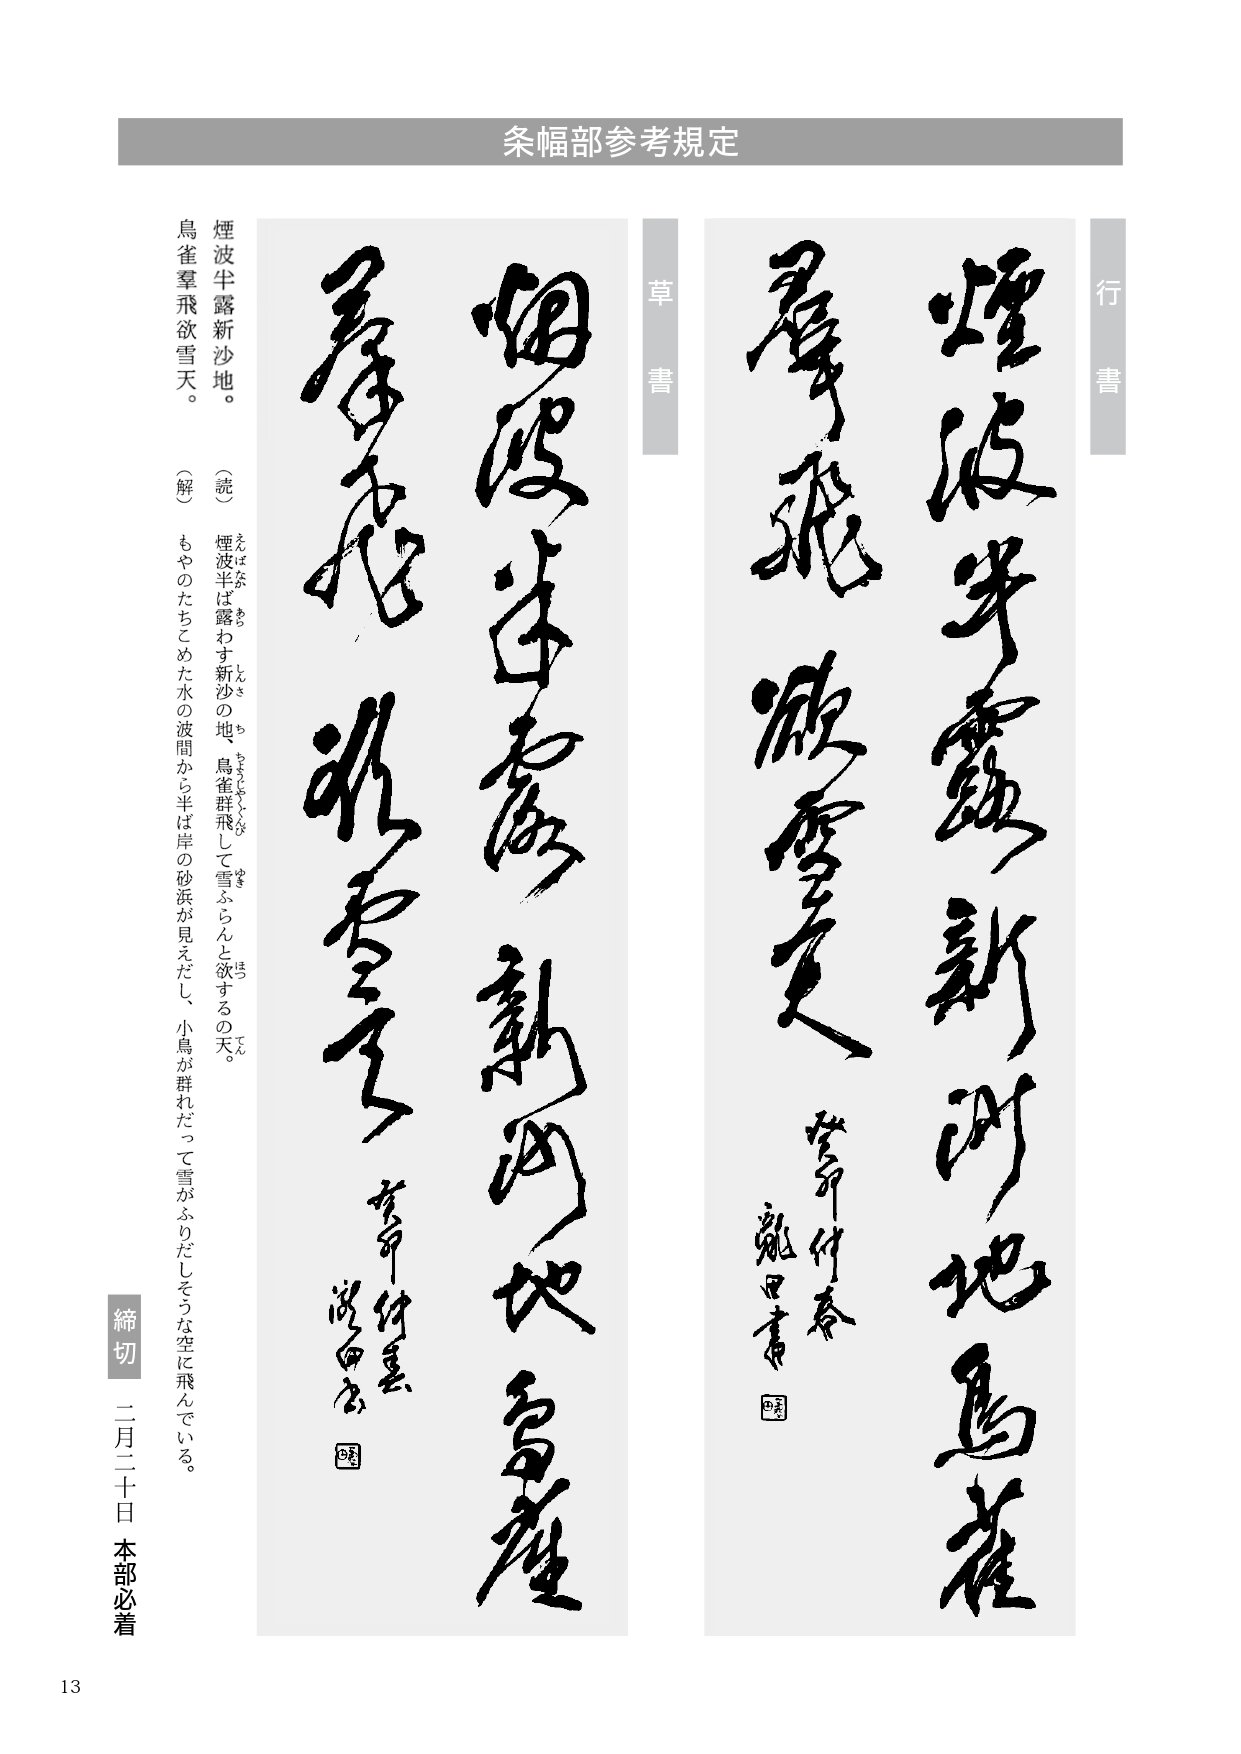 条幅部参考規定
行書
煙波半露新沙地鳥雀
羣飛欲雪天
癸卯仲春
龍田書
草書
烟波半露新沙地鳥雀
羣飛欲雪天
癸卯仲春
田書
煙波半露新沙地。
鳥雀羣飛欲雪天。
（読）　煙波半ば露わす新沙の地、鳥雀群飛して雪ふらんと欲するの天。
えんぱなか　あら　しんさ　ち　ちょうじゃくぐんぴ　ゆき　ほつ　てん
（解）　もやのたちこめた水の波間から半ば岸の砂浜が見えだし、小鳥が群れだって雪がふりだしそうな空に飛んでいる。
締切　二月二十日　本部必着
13